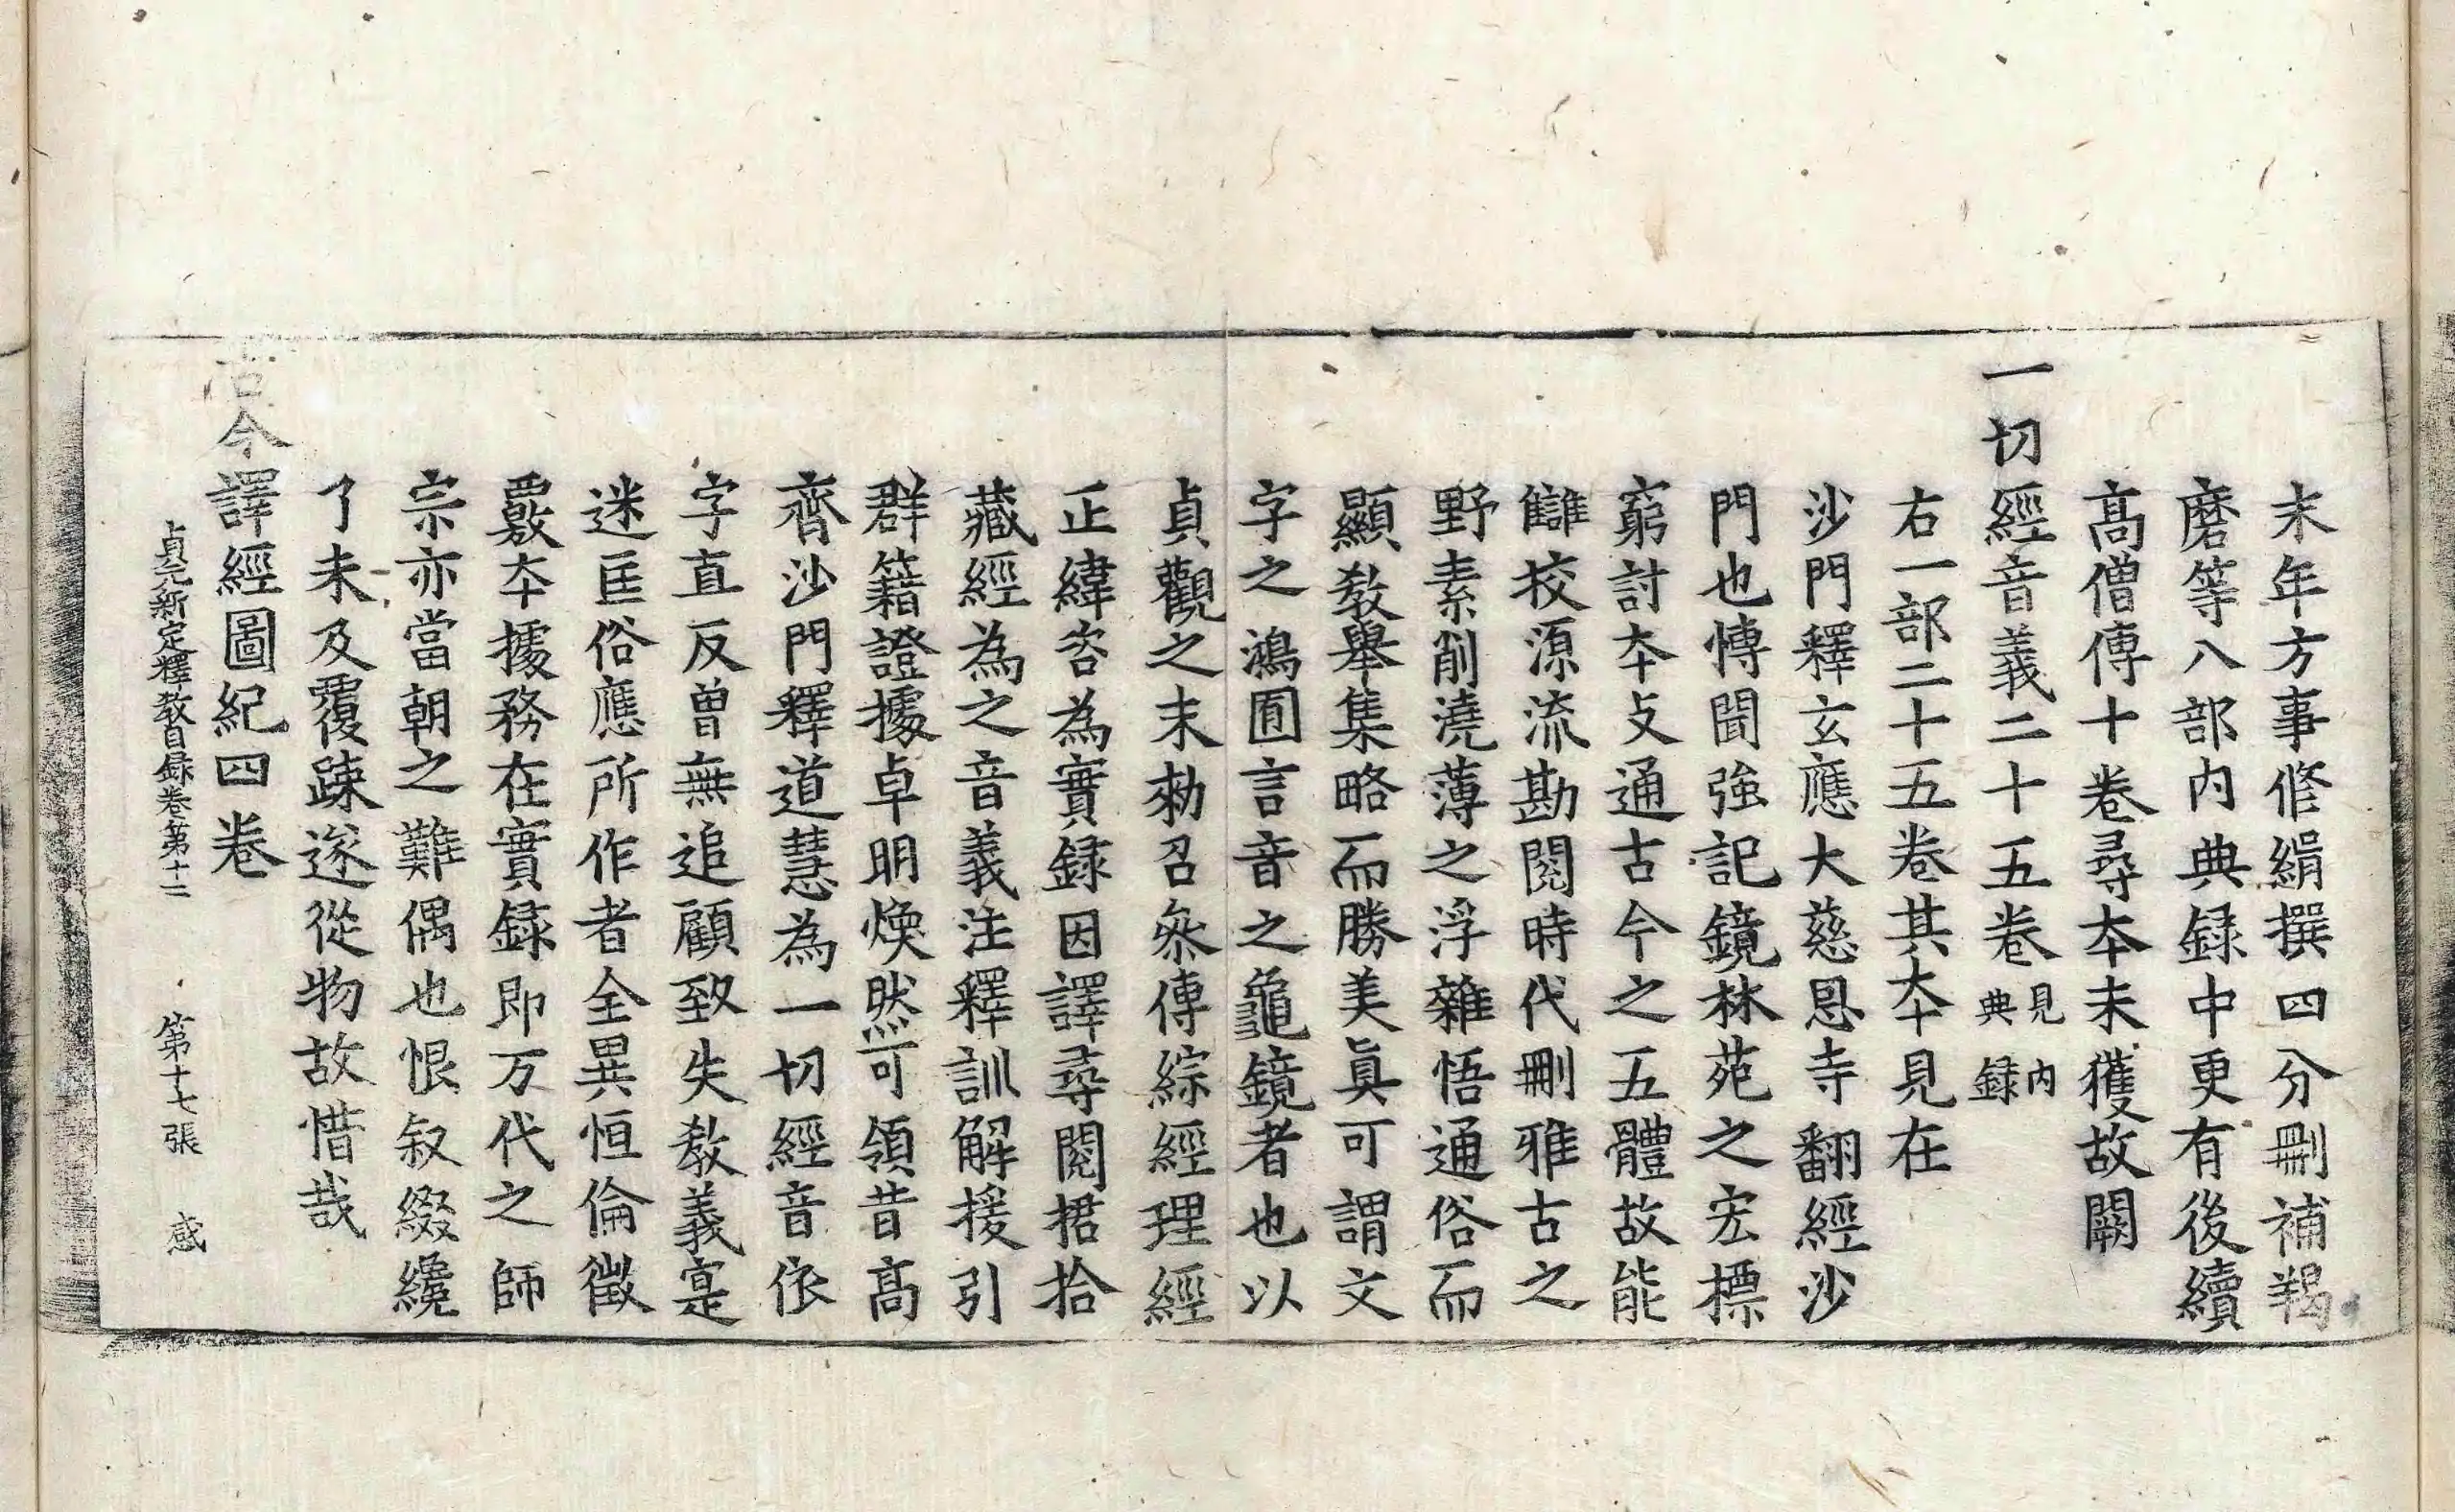 末年方事修緝撰四分刪補羯
磨等八部內典録中更有後續
髙僧傳十卷尋本未獲故闕
一切經音義二十五卷見内典録
右一部二十五卷其本見在
沙門釋玄應大慈恩寺翻經沙
門也博聞強記鏡林苑之宏標
窮討本支通古今之五體故能
讎挍源流勘閱時代刪雅古之
野素削澆薄之浮雜悟通俗而
顯教舉集略而勝美眞可謂文
字之鴻圃言音之龜鏡者也以
貞觀之末勑召叅傳綜經理經
正緯咨為實録因譯尋閱捃拾
藏經為之音義注釋訓解援引
群籍證據卓明煥然可領昔髙
齊沙門釋道慧為一切經音依
字直反曽無追顧致失教義寔
迷匡俗應所作者全異恒倫徵
覈本據務在實録即万代之師
宗亦當朝之難偶也恨叙綴纔
了未及覆踈遂從物故惜哉
古今譯經圖紀四卷
貞元新定釋教目録卷第十二　第十七張　感